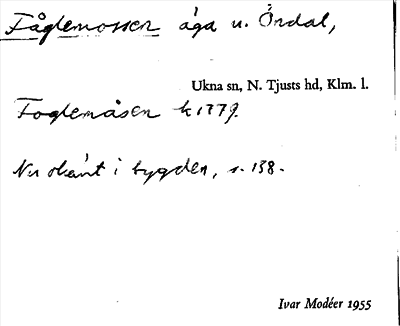 Fåglemossen äga u. Öndal,
Ukna sn, N. Tjusts hd, Klm. l.
Foglemåsen k 1779.
Nu okänt i bygden, s. 138.
Ivar Modéer 1955